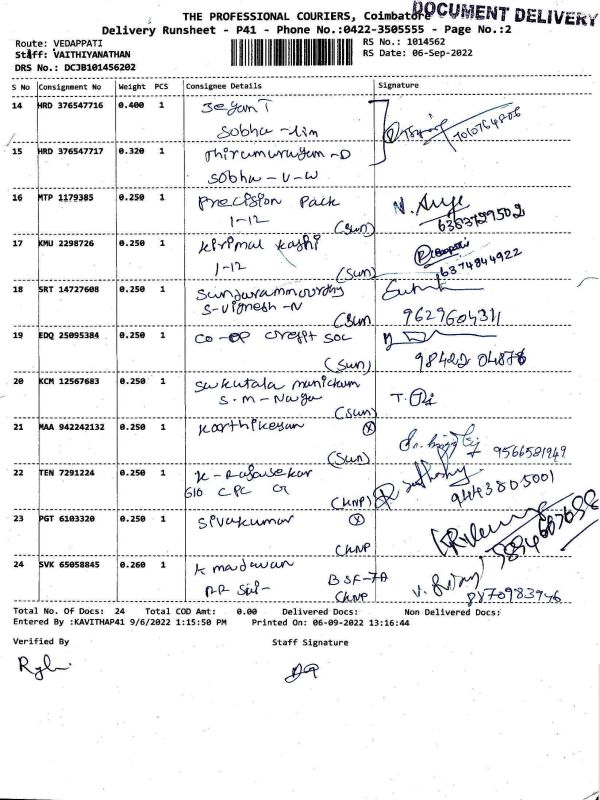 THE PROFESSIONAL COURIERS, Coimbatore
DOCUMENT DELIVERY
Delivery Runsheet - P41 - Phone No.:0422-3505555 - Page No.:2
Route: VEDAPPATI
RS No.: 1014562
Staff: VAITHIYANATHAN
RS Date: 06-Sep-2022
DRS No.: DCJB101456202
S No Consignment No Weight PCS Consignee Details Signature
14 HRD 376547716 0.400 1 Jeyan T
Sobha
7010764806
15 HRD 376547717 0.320 1 Thirumurugan -D
Sobha -U-W
16 MTP 1179385 0.250 1 Precision Pack
1-12
(Sun)
6383729502
17 KMU 2298726 0.250 1 Kirimal Kashi
1-12
(Sun)
6374844922
18 SRT 14727608 0.250 1 Sundarammoorthy
S-Vignesh -N
(Sun
9629604311
19 EDQ 25095384 0.250 1 CO-OP Credit SOC
(Sun)
98422 04878
20 KCM 12567683 0.250 1 Sakutala manickam
S.M-Naga
(Sun)
21 MAA 942242132 0.250 1 Karthikeyan
(Sun)
9566581949
22 TEN 7291224 0.250 1 K-Rajasekar
G10 CPC
(KNP)
9443805001
23 PGT 6103320 0.250 1 Sivakumar
CKNP
24 SVK 65058845 0.260 1 K madavan
BSF-7A
CKNP
8870983946
Total No. Of Docs: 24 Total COD Amt: 0.00 Delivered Docs: Non Delivered Docs:
Entered By :KAVITHAP41 9/6/2022 1:15:50 PM Printed On: 06-09-2022 13:16:44
Verified By Staff Signature